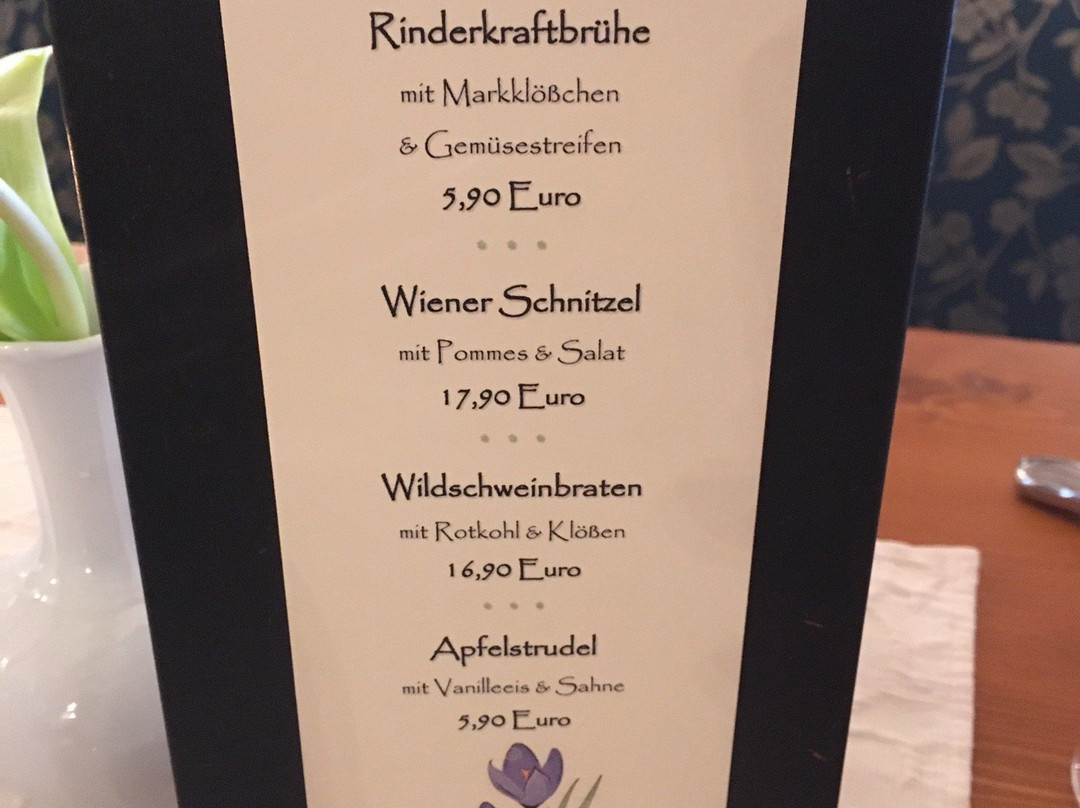 Rinderkraftbrühe
mit Markklößchen
& Gemüsestreifen
5,90 Euro
Wiener Schnitzel
mit Pommes & Salat
17,90 Euro
Wildschweinbraten
mit Rotkohl & Klößen
16,90 Euro
Apfelstrudel
mit Vanilleeis & Sahne
5,90 Euro